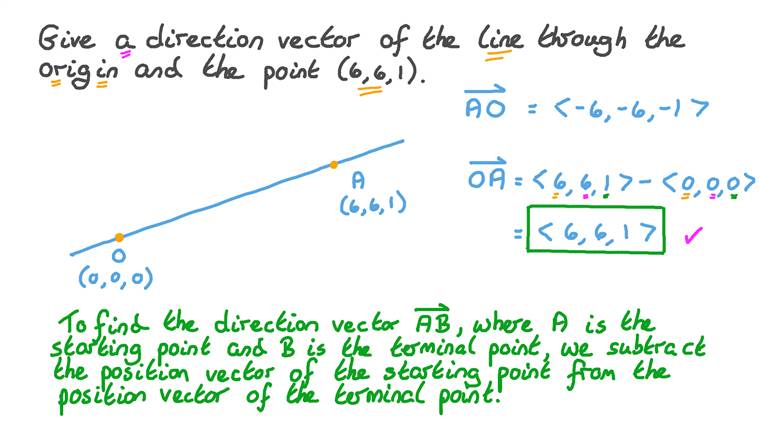 Give a direction vector of the line through the
origin and the point (6,6,1).
AO = <-6,-6,-1>
OA = <6,6,1> - <0,0,0>
= <6,6,1> ✓
A
(6,6,1)
O
(0,0,0)
To find the direction vector AB, where A is the
starting point and B is the terminal point, we subtract
the position vector of the starting point from the
position vector of the terminal point.